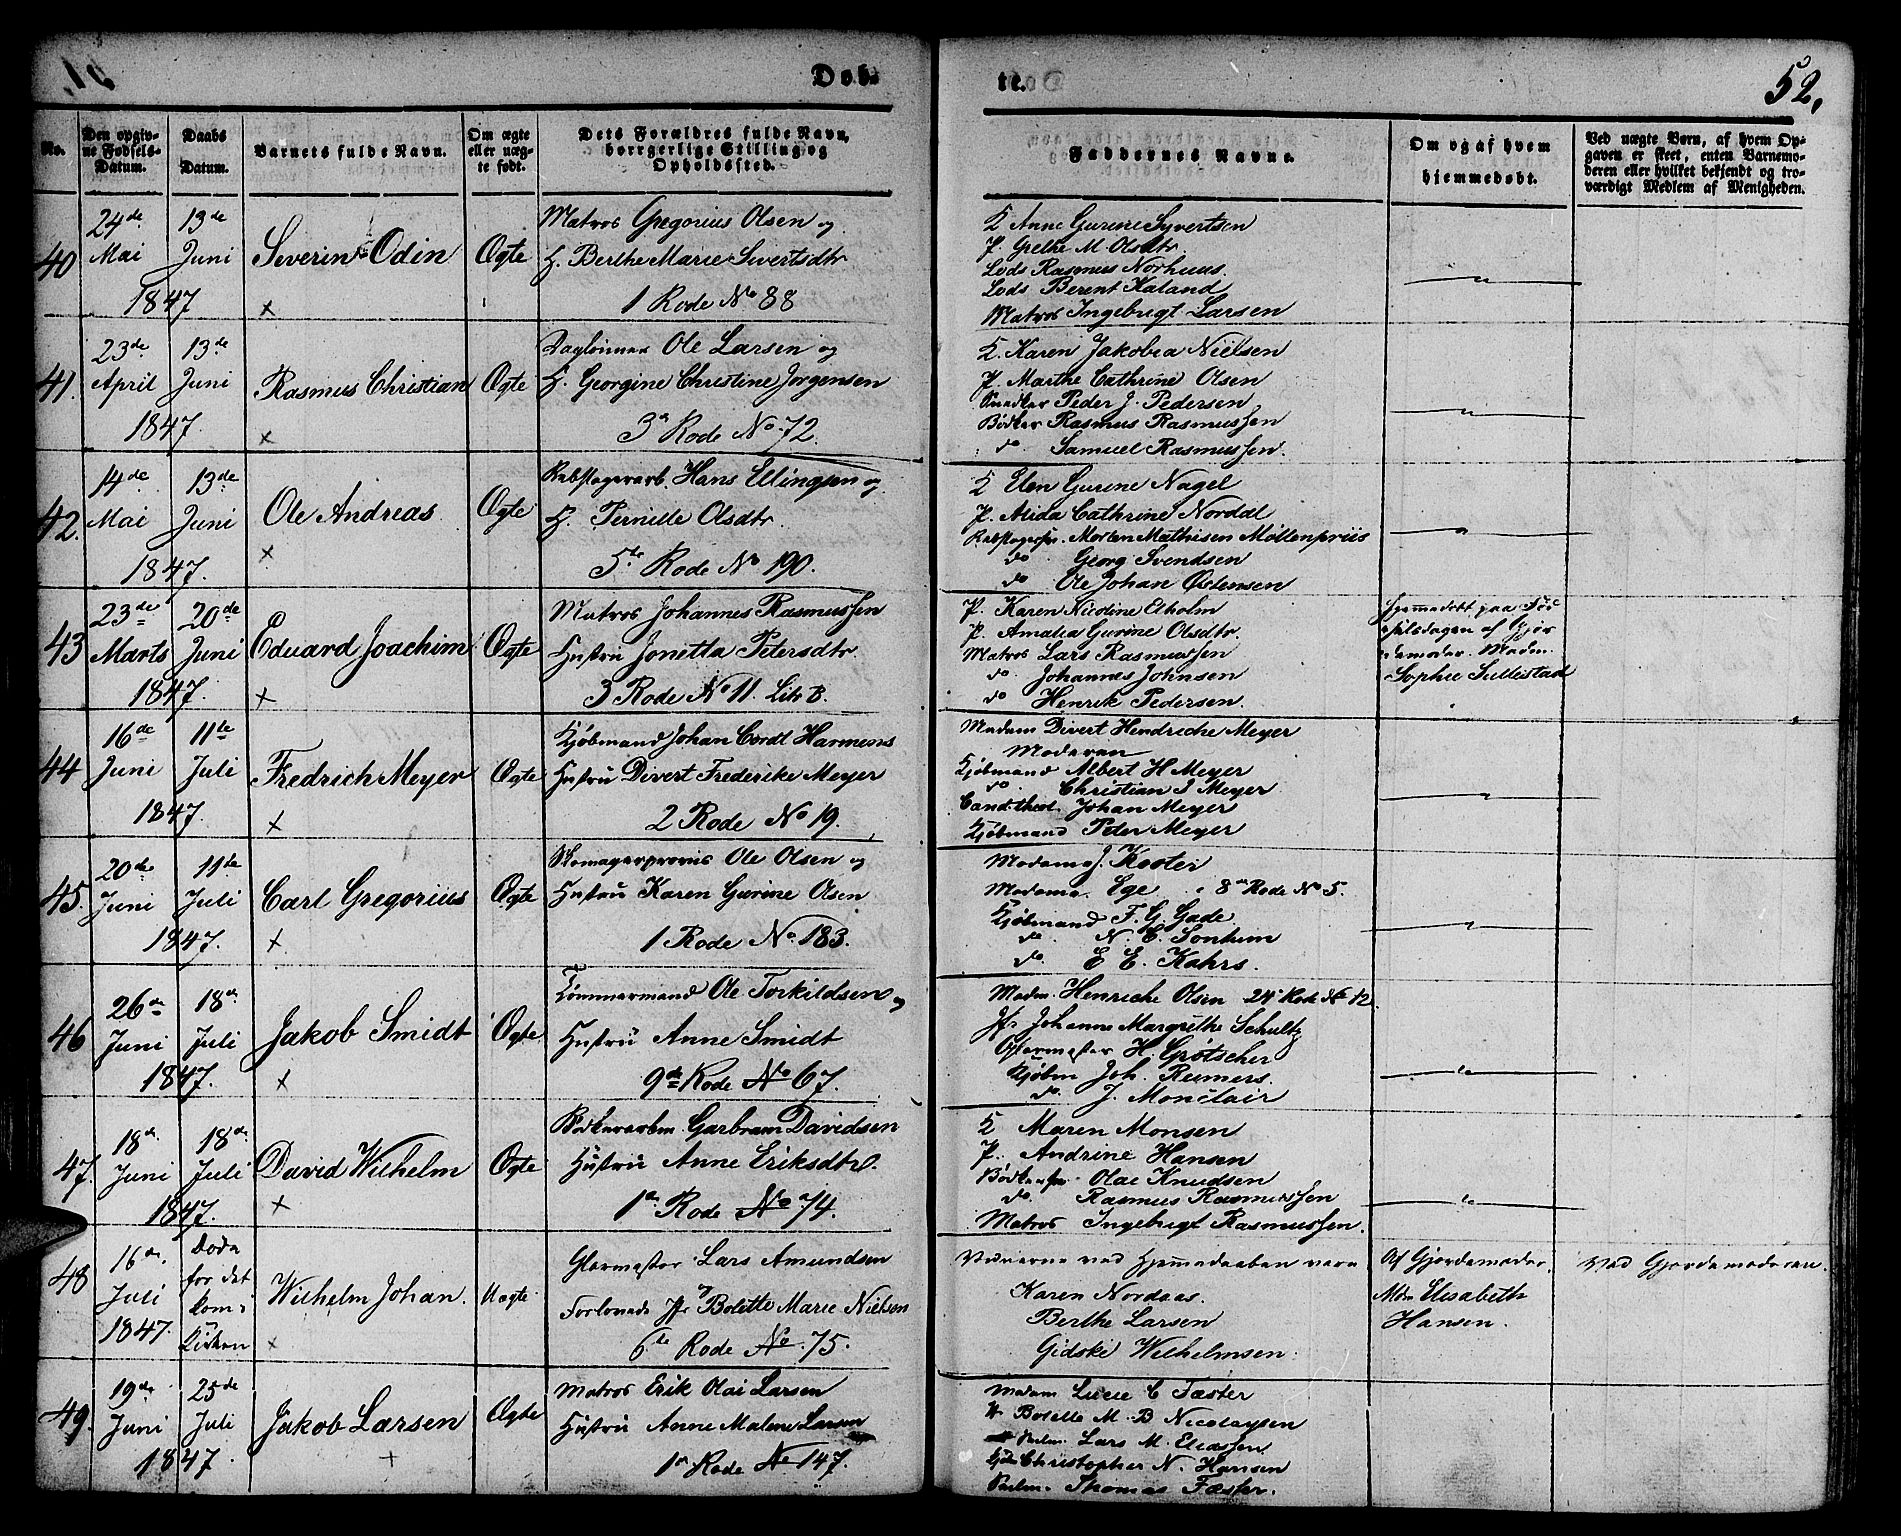 Døb-
te.
52,
No.
Den opgiv-
ne Fødsels-
Datum.
Daabs
Datum.
Barnets fulde Navn.
Om ægte
eller uæg-
te født.
Dets Forældres fulde Navn,
borrgerlige Stilling og
Opholdssted.
Faddernes Navne.
Om og af hvem
hjemmedøbt.
Ved uægte Børn, af hvem Op-
gaven er skeet, enten Barnemo-
deren eller hvilket bekjendt og tro-
værdigt Medlem af Menigheden.
40
24de
Mai
1847
13de
Juni
Severin Odin
×
Ægte
Matros Gregorius Olsen og
H. Berthe Marie Sivertsdtr
1 Rode No 88
K Anne Gurine Syvertsen
P. Grethe M. Olsdtr
Lods Rasmus Norhuus.
Lods Berent Kaland
Matros Ingebrigt Larsen
41.
23de
April
1847.
13de
Juni
Rasmus Christian
×
Ægte
Dagleinner Ole Larsen og
H. Georgine Christine Jørgensen
3a Rode No 72.
K. Karen Jakobea Nielsen
P. Marthe Cathrine Olsen
Snedker Peder J. Pedersen
Bødker Rasmus Rasmussen
do Samuel Rasmussen.
42.
14de
Mai
1847.
13de
Juni
Ole Andreas
×
Ægte
Rebslagerarb. Hans Ellingsen og
H. Pernille Olsdtr.
5te Rode No 190.
K Elen Gurine Nagel
P. Alida Cathrine Norddl
Rebslagersv. Morten Mathisen Møllenpriis
do Georg Svendsen
do Ole Johan Østensen
43
23de
Marts
1847.
20de
Juni
Eduard Joachim
×
Ægte
Matros Johannes Rasmussen
Hustru Jonetta Petersdtr
3 Rode No 11. Litr B.
P. Karen Nicoline Etholm
P. Amalia Gurine Olsdtr.
Matros Lars Rasmussen
do Johannes Johnsen
do Henrik Pedersen.
Hjemmedøbt paa Fød
selsdagen af Gjor
demoder Madm.
Sophie Sullestad
44
16de
Juni
1847.
11te
Juli
Fredrich Meyer
×
Ægte
Kjøbmand Johan Cordt Harmens
Hustru Divert Frederike Meyer
2 Rode No 19.
Madam Divert Hendriche Meyer
Moderen
Kjøbmand Albert H Meyer
do Christian J Meyer
Cand. theol. Johan Meyer
Kjøbmand Peter Meyer
45.
20de
Juni
1847.
11te
Juli
Carl Gregorius
×
Ægte
Skomagerprovis Ole Olsen og
Hustru Karen Gurine Olsen
1 Rode No. 183.
Madame J. Koster
Madame Ege 8de Rode No 5.
Kjøbmand F. G. Gade
do N. C. Sontum
do E E. Kahrs.
46
26de
Juni
1847.
18de
Juli
Jakob Smidt
×
Ægte
Tømmermand Ole Torkildsen og
Hustru Anne Smidt
9de Rode No 67.
Madm. Henriche Olsen 24 Rode No 12
Jfr Johanne Margrethe Schultz
H. Grøtscher
Kjøbm Joh. Reimers.
do. J. Monclair
47.
18de
Juni
1847.
18de
Juli
David Wilhelm
×
Ægte
Garbram Davidsen
Hustru Anne Eriksdtr.
1de Rode No 74.
K Maren Monsen
P. Andrine Hansen
Bødkersv. Olai Knudsen
do. Rasmus Rasmussen
Matros Ingebrigt Rasmussen.
48
16de
Juli
1847.
Døde
før det
kom i
Kirken
Wilhelm Johan.
×
Uægte
Glarmester Lars Amundsen
og
Forlovede Jfr Bolette Marie Nielsen
6te Rode No. 75.
Vidnerne ved Hjemmedaaben vare
Karen Nordaas.
Berthe Larsen
Gidske Wilhelmsen.
Af Gjordemoder
Mdm Elisabeth
Hansen.
Ved Gjordemoderen.
49.
19de
Juni
1847.
25de
Juli
Jakob Larsen
×
Ægte
Matros Erik Olai Larsen
Hustru Anne Malene Larsen
1de Rode No 147.
Madam Lucie C Fæster
Bolette M. B Nicolaysen
Lars M. Eliassen
Christopher N. Hansen
Thomas Fæster.